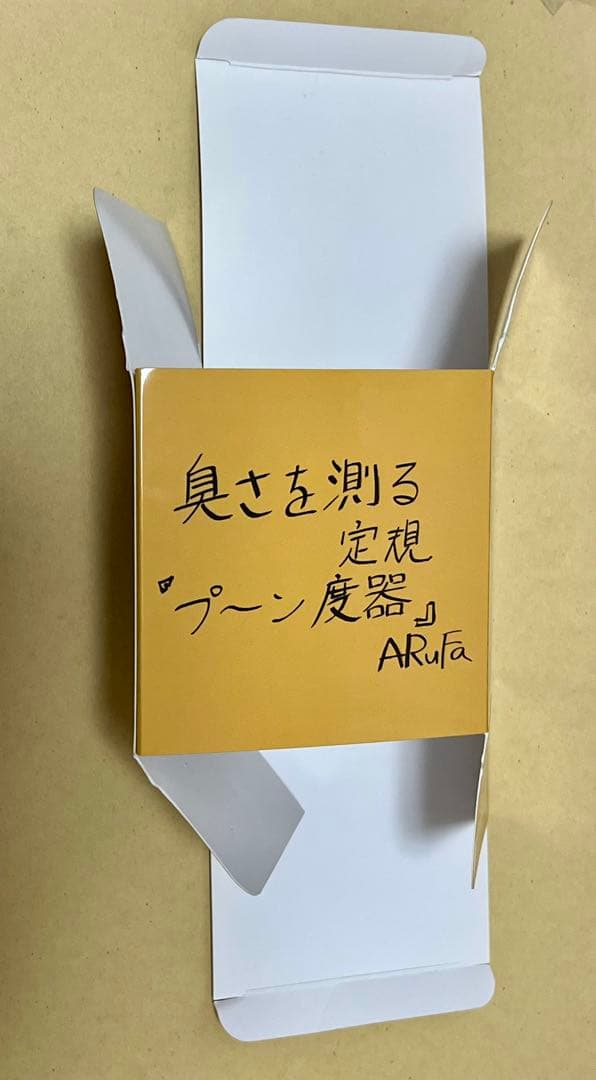 臭さを測る
定規
『プ〜ン度器』
ARuFa